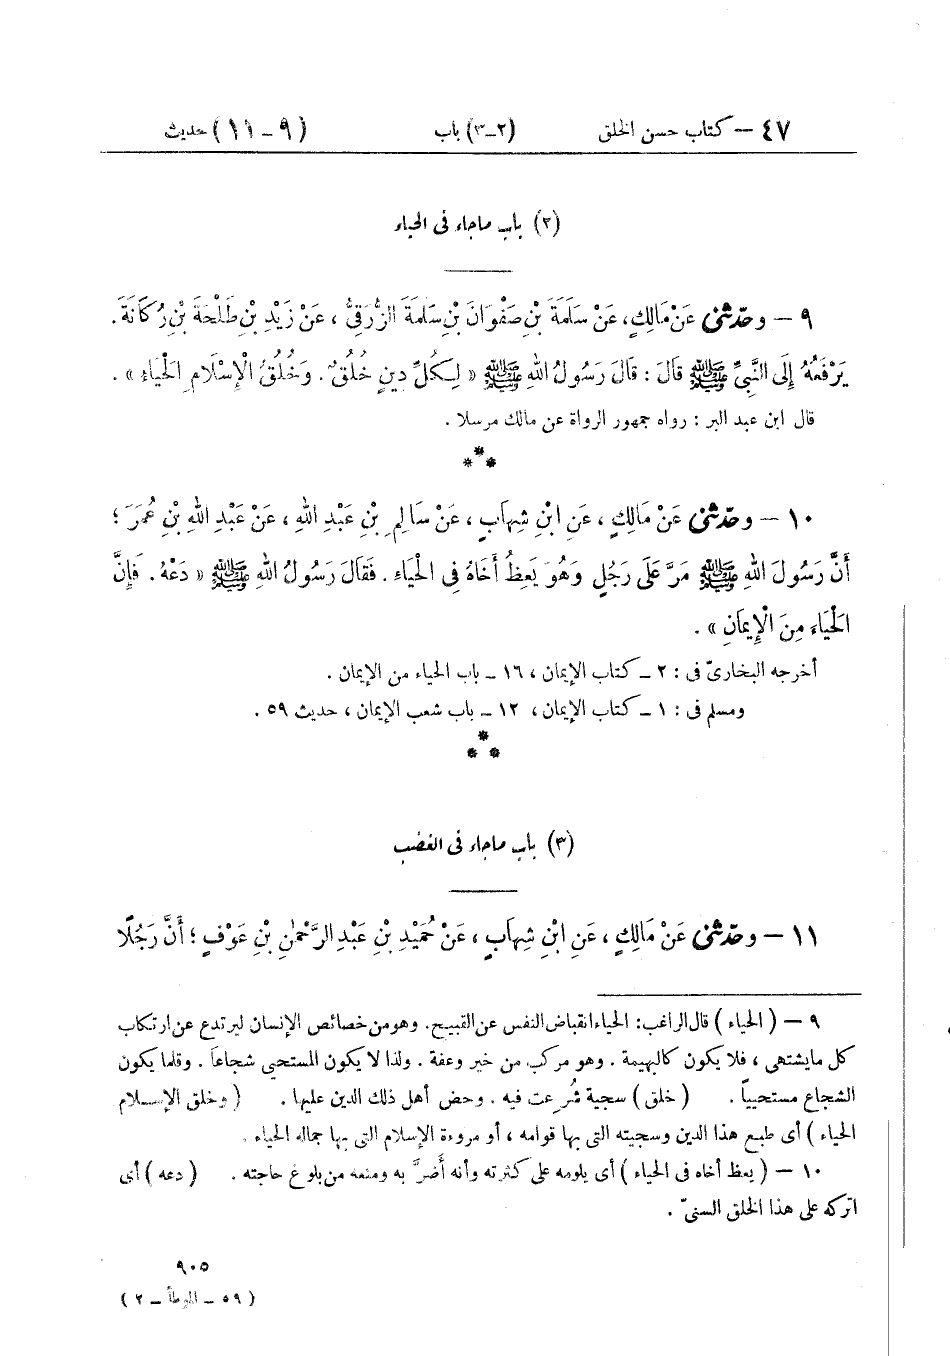 ٤٧ – كتاب حسن الخلق (٢–٣) باب (٩–١١) حديث
(٢) باب ماجاء فى الحياء
٩ – وحدّثنى عَنْ مَالِكٍ، عَنْ سَلَمَةَ بْنِ صَفْوَانَ بْنِ سَلَمَةَ الزُّرَقِيِّ ، عَنْ زَيْدِ بْنِ طَلْحَةَ بْنِ رُكَانَةَ .
يَرْفَعُهُ إِلَى النَّبِيِّ ﷺ قَالَ : قَالَ رَسُولُ اللهِ ﷺ « لِكُلِّ دِينٍ خُلُقٌ . وَخُلُقُ الْإِسْلَامِ الْحَيَاءِ » .
قال ابن عبد البر : رواه جمهور الرواة عن مالك مرسلا .
***
١٠ – وحدّثنى عَنْ مَالِكٍ ، عَنِ ابْنِ شِهَابٍ ، عَنْ سَالِمِ بْنِ عَبْدِ اللهِ ، عَنْ عَبْدِ اللهِ بْنِ عُمَرَ ؛
أَنَّ رَسُولَ اللهِ ﷺ مَرَّ عَلَى رَجُلٍ وَهُوَ يَعِظُ أَخَاهُ فِى الْحَيَاءِ . فَقَالَ رَسُولُ اللهِ ﷺ « دَعْهُ . فَإِنَّ
الْحَيَاءَ مِنَ الْإِيمَانِ » .
أخرجه البخارىّ فى : ٢ – كتاب الإيمان ، ١٦ – باب الحياء من الإيمان .
ومسلم فى : ١ – كتاب الإيمان ، ١٢ – باب شعب الإيمان ، حديث ٥٩ .
***
(٣) باب ماجاء فى الغضب
١١ – وحدّثنى عَنْ مَالِكٍ ، عَنِ ابْنِ شِهَابٍ ، عَنْ حُمَيْدِ بْنِ عَبْدِ الرَّحْمٰنِ بْنِ عَوْفٍ ؛ أَنَّ رَجُلًا
٩ – ( الحياء ) قال الراغب : الحياء انقباض النفس عن القبيح . وهو من خصائص الإنسان ليرتدع عن ارتكاب
كل مايشتهى ، فلا يكون كالبهيمة . وهو مركب من خير وعفة . ولذا لا يكون المستحيى شجاعا . وقلما يكون
الشجاع مستحييا . ( خلق ) سجية شُرعت فيه . وحض أهل ذلك الدين عليها . ( وخلق الإسلام
الحياء ) أى طبع هذا الدين وسجيته التى بها قوامه ، أو مروءة الإسلام التى بها جماله الحياء .
١٠ – ( يعظ أخاه فى الحياء ) أى يلومه على كثرته وأنه أضرّ به ومنعه من بلوغ حاجته . ( دعه ) أى
اتركه على هذا الخلق السنىّ .
٩٠٥
( ٥٩ – الموطأ – ٢ )